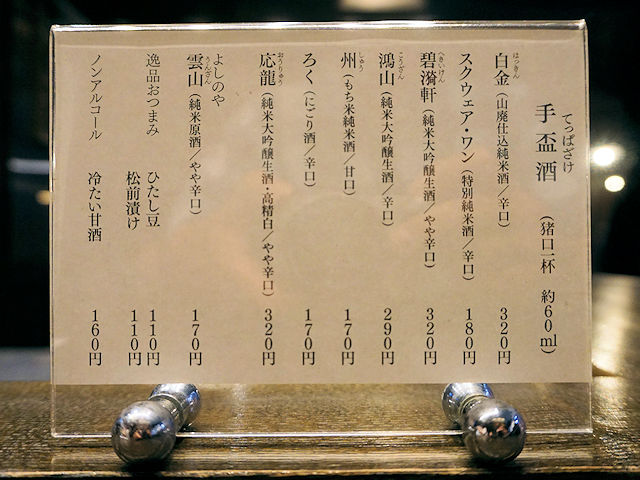 てっぱざけ
手盃酒 (猪口一杯 約60ml)
はっきん
白金 (山廃仕込純米酒/辛口) 320円
スクウェア・ワン (特別純米酒/辛口) 180円
へきいけん
碧漪軒 (純米大吟醸生酒/やや辛口) 320円
こうざん
鴻山 (純米大吟醸生酒/辛口) 290円
しゅう
州 (もち米純米酒/甘口) 170円
ろく (にごり酒/辛口) 170円
おうりゅう
応龍 (純米大吟醸生酒・高精白/やや辛口) 320円
よしのや
うんざん
雲山 (純米原酒/やや辛口) 170円
逸品おつまみ ひたし豆 110円
松前漬け 110円
ノンアルコール 冷たい甘酒 160円